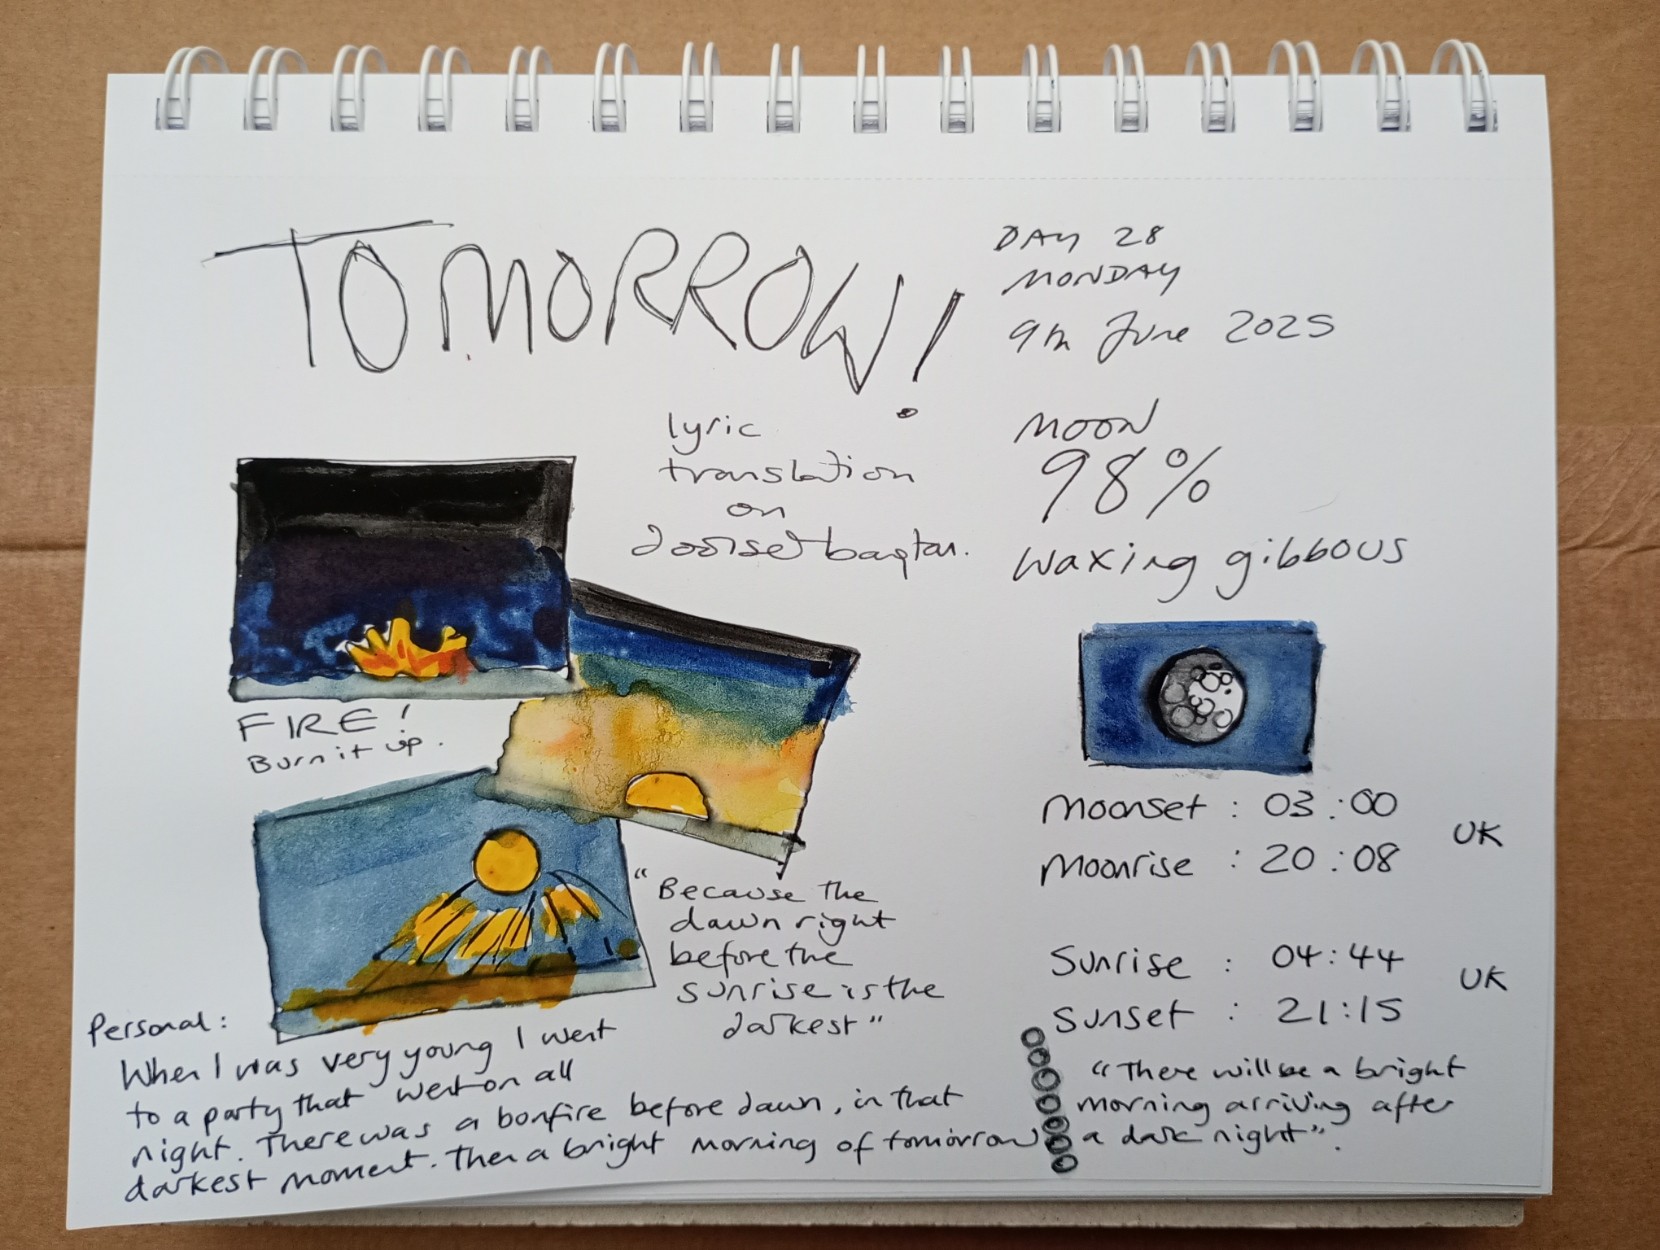 TOMORROW!
DAY 28
MONDAY
9th June 2025
lyric
translation
on
doolsetbangtan.
MOON
98%
waxing gibbous
FIRE!
Burn it up.
moonset : 03:00
UK
moonrise : 20:08
"Because the
dawn right
before the
sunrise is the
darkest"
Sunrise : 04:44
UK
sunset : 21:15
Personal:
When I was very young I went
to a party that went on all
night. There was a bonfire before dawn, in that
darkest moment. Then a bright morning of tomorrow
"There will be a bright
morning arriving after
a dark night".